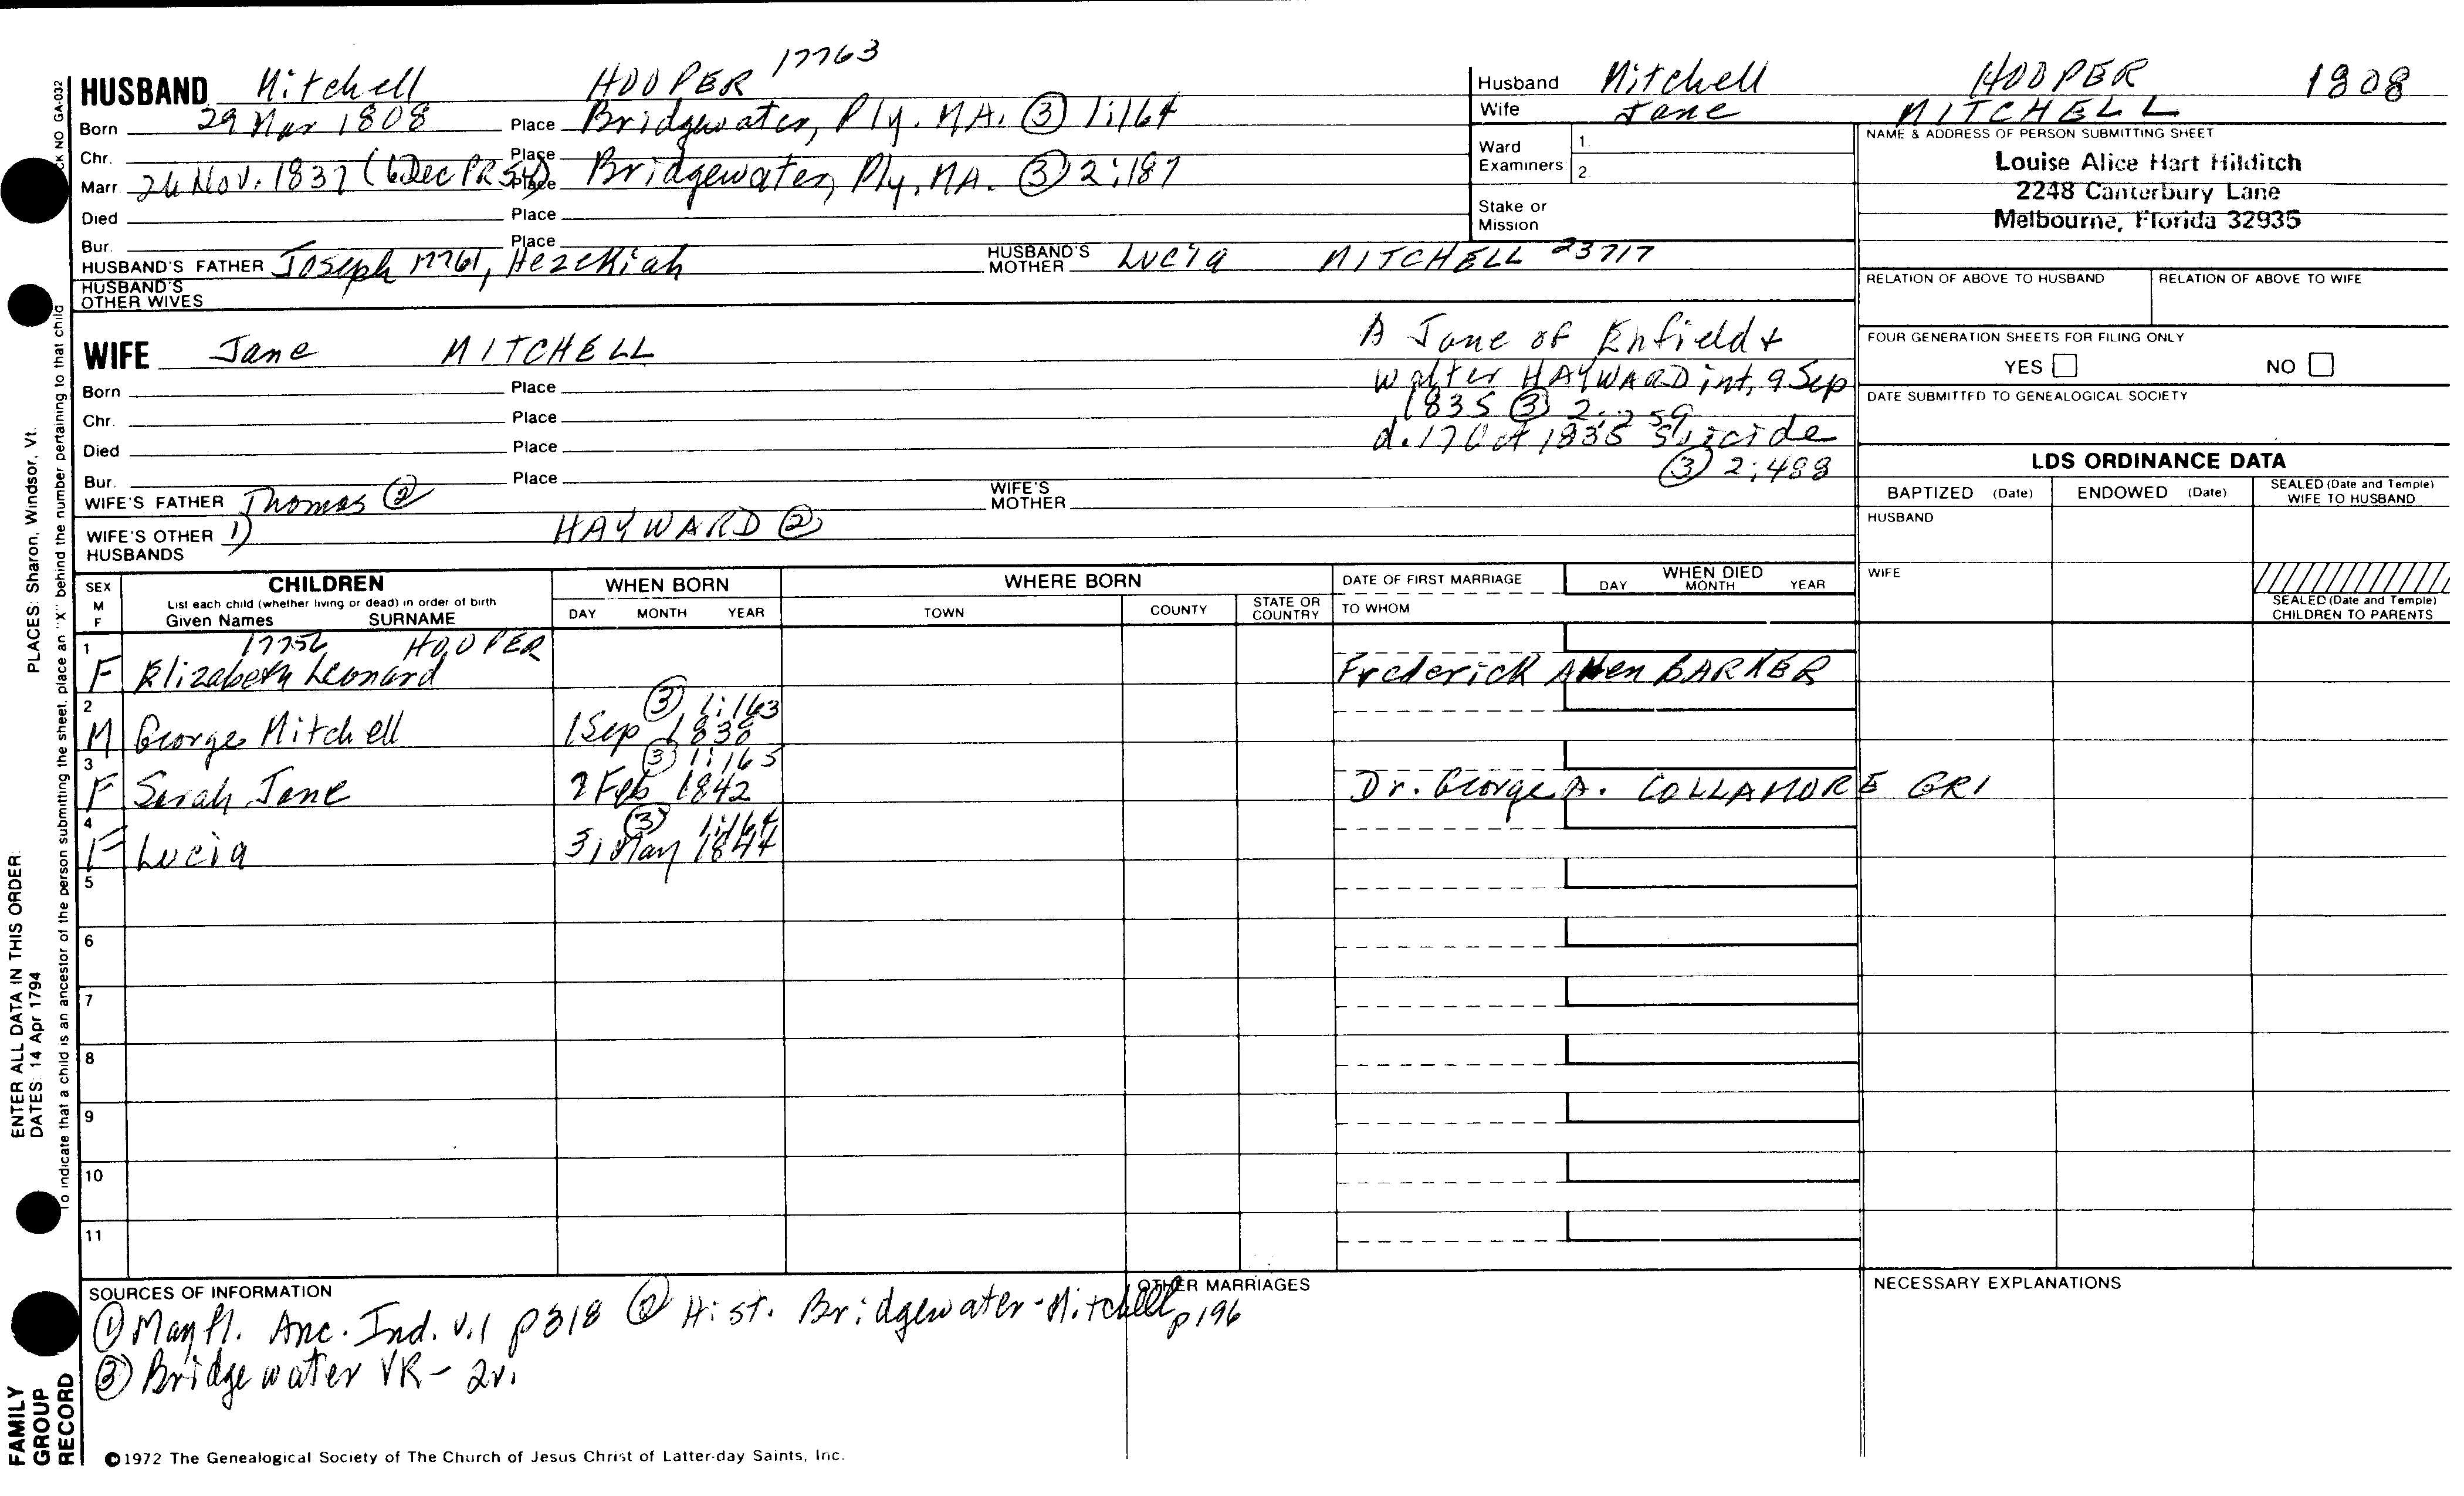 HUSBAND Mitchell HOOPER 17763
Born 29 Mar 1808 Place Bridgewater, Ply. MA. ③ 1:164
Chr. Place
Marr. 26 Nov. 1837 (6 Dec PR 54) Place Bridgewater, Ply. MA. ③ 2:187
Died Place
Bur. Place
HUSBAND'S FATHER Joseph 17761, Hezekiah HUSBAND'S MOTHER Lucia MITCHELL 23717
HUSBAND'S OTHER WIVES
Husband Mitchell HOOPER 1808
Wife Jane MITCHELL
Ward Examiners: 1.
2.
Stake or Mission
NAME & ADDRESS OF PERSON SUBMITTING SHEET
Louise Alice Hart Hilditch
2248 Canterbury Lane
Melbourne, Florida 32935
RELATION OF ABOVE TO HUSBAND RELATION OF ABOVE TO WIFE
FOUR GENERATION SHEETS FOR FILING ONLY
YES NO
DATE SUBMITTED TO GENEALOGICAL SOCIETY
WIFE Jane MITCHELL
Born Place
Chr. Place
Died Place
Bur. Place
A Jane of Enfield +
Walter HAYWARD int. 9 Sep
1835 ③ 2:259
d. 17 Oct 1835 Suicide
③ 2:488
WIFE'S FATHER Thomas ② WIFE'S MOTHER
WIFE'S OTHER HUSBANDS 1) HAYWARD ②
LDS ORDINANCE DATA
BAPTIZED (Date) ENDOWED (Date) SEALED (Date and Temple) WIFE TO HUSBAND
HUSBAND
WIFE
SEALED (Date and Temple) CHILDREN TO PARENTS
SEX M F CHILDREN WHEN BORN WHERE BORN DATE OF FIRST MARRIAGE WHEN DIED
List each child (whether living or dead) in order of birth
Given Names SURNAME DAY MONTH YEAR TOWN COUNTY STATE OR COUNTRY TO WHOM DAY MONTH YEAR
1 17756 HOOPER
F Elizabeth Leonard Frederick Allen BARKER
2 ③ 1:163
M George Mitchell 1 Sep 1838
3 ③ 1:165
F Sarah Jane 7 Feb 1842 Dr. George A. COLLAMORE GRI
4 ③ 1:164
F Lucia 31 May 1844
5
6
7
8
9
10
11
SOURCES OF INFORMATION OTHER MARRIAGES NECESSARY EXPLANATIONS
① Mayfl. Anc. Ind. v.1 p318 ② Hist. Bridgewater-Mitchell p196
③ Bridgewater VR- 2v.
©1972 The Genealogical Society of The Church of Jesus Christ of Latter-day Saints, Inc.
FAMILY GROUP RECORD
ENTER ALL DATA IN THIS ORDER:
DATES: 14 Apr 1794
PLACES: Sharon, Windsor, Vt.
To indicate that a child is an ancestor of the person submitting the sheet, place an "X" behind the number pertaining to that child
CK NO GA-032